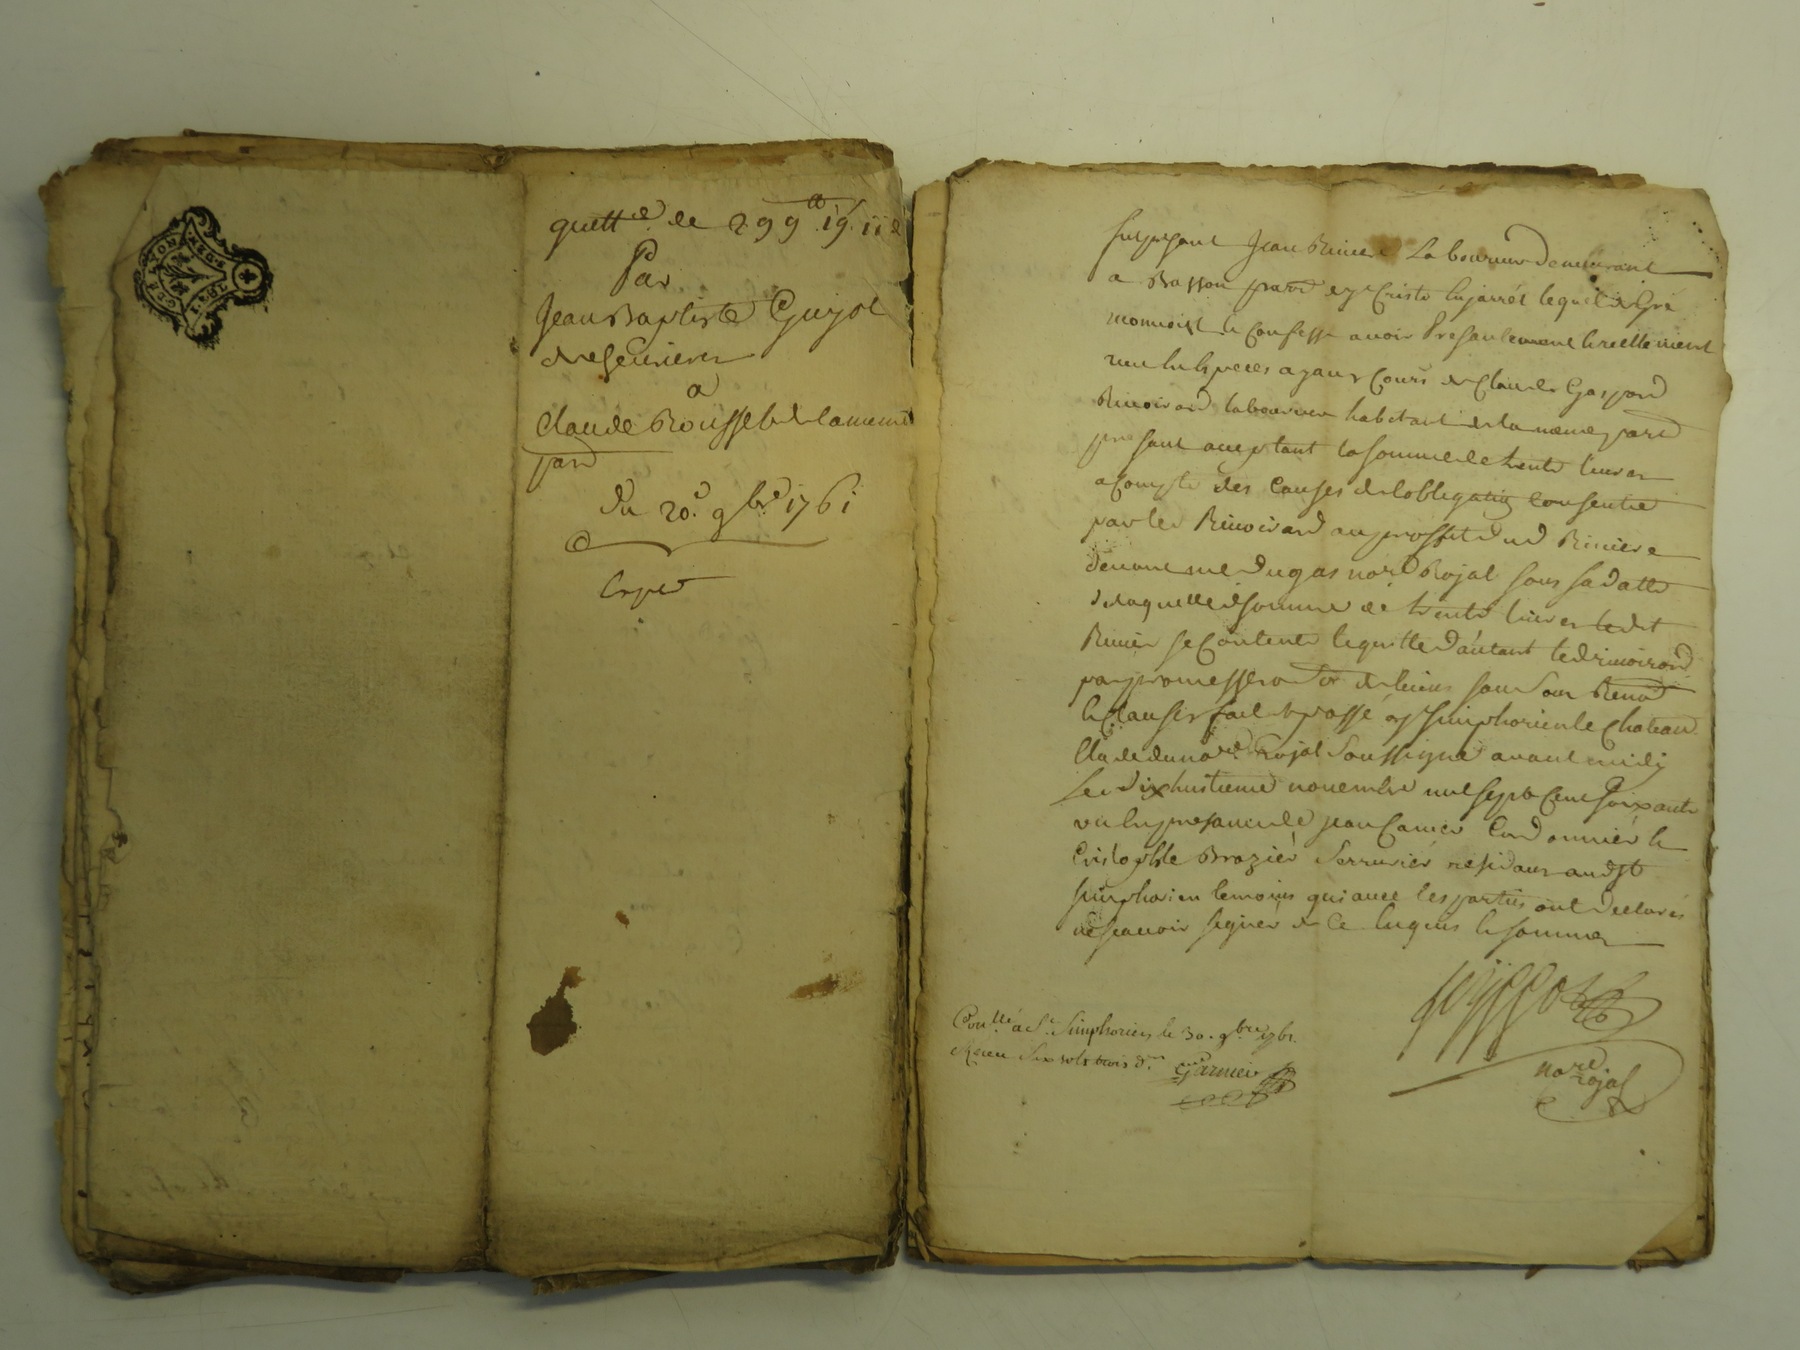 GEN DE LYON
quitt.ce de 299tt 19 11d
Par
Jean Baptiste Guyot
a
Claude Rousset de la meme
parr
du 20.e 9bre 1761
Expé
fut present Jean Riviere Laboureur demeurant
a parr en jarrés lequel de gré
a confessé avoir presentement et reellement
reçu en especes ayant cours de Claude Gaspard
Rivoirard laboureur habitant de la meme parr
present acceptant la somme de trente livres
a compte des causes de l'obligation consentie
par led Rivoirard au proffit dud Riviere
devant me Dugas nore Royal sous sa datte
de laquelle de somme de trente livres ledit
Rivier se contente et quitte d'autant led rivoirard
par promesses &
& clauses fait & passé a st simphorien le Chateau
Etude du nore Royal soussigné avant midy
Le dixhuitieme novembre mil sept cent soixante
un en presence de jean Cordonnier &
Cristophle Brazier Serrurier residans aud st
simphorien temoins qui avec les parties ont declarés
ne sçavoir signer de ce enquis & sommés
nore
royal
Conllé a St Simphorien le 30. 9bre 1761.
Reçu six sols trois drs Garnier